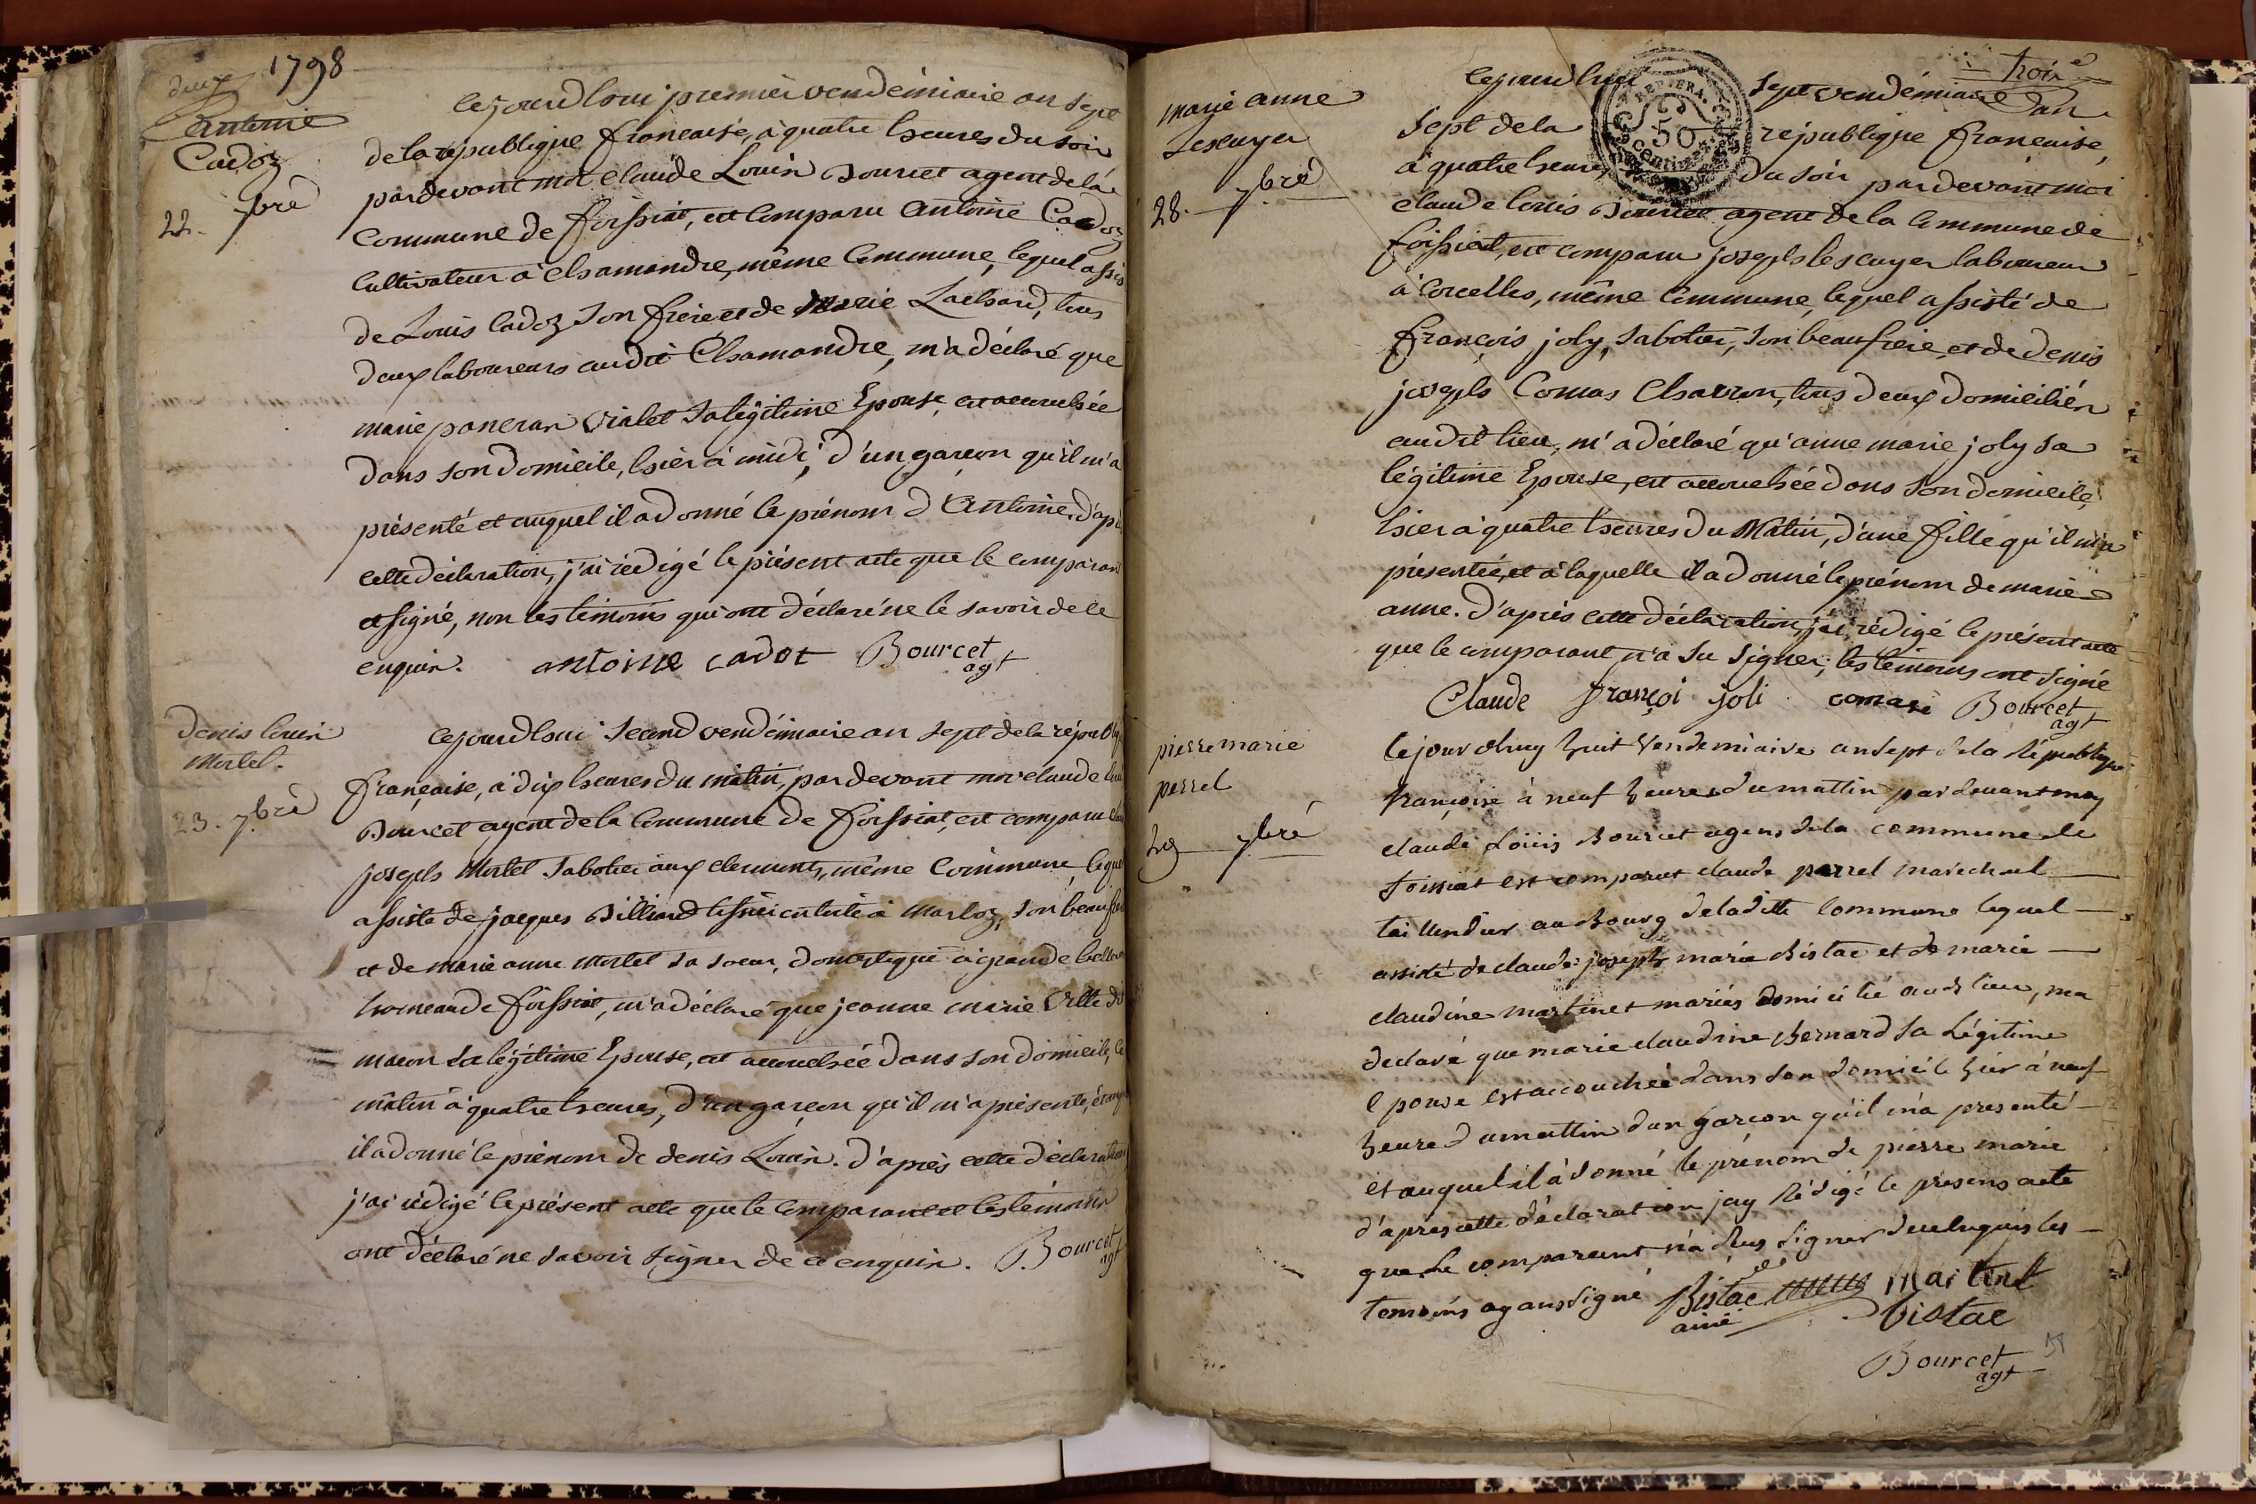 deux
1798
Antoine
Cadoz
22. 7bre
Cejourd'hui premier vendémiaire an sept
de la république francaise, à quatre heures du soir
pardevant moi Claude Louis Bourcet agent de la
Commune de foissiat, est comparu Antoine Cadoz
Cultivateur à Chamandre, même Commune, lequel assis
de Louis Cadoz son frère et de Marie Lachard, tous
deux laboureurs audit Chamandre, m'a déclaré que
marie vialet sa légitime Epouse, est accouchée
dans son domicile, hier à midi, d'un garçon qu'il m'a
présenté et auquel il a donné le prénom d'Antoine. d'ap
cette déclaration, j'ai rédigé le présent acte que le comparant
a signé, non les témoins qui ont déclaré ne le savoir de ce
enquis. antoine cadot Bourcet
agt
denis Louis
Mortel.
23. 7bre
Cejourd'hui second vendémiaire an sept de la répub
française, à dix heures du matin, pardevant moi claude
Bourcet agent de la Commune de foissiat, est comparu
joseph Mortel sabotier aux clermonts, même Commune, leque
assisté de jacques Billiard à Marboz, son beaufr
et de marie anne Mortel sa soeur, domestique à grande
hameau de foissiat, m'a déclaré que jeanne marie
macon sa légitime Epouse, est accouchée dans son domicile, ce
matin à quatre heures, d'un garçon qu'il m'a présenté, et
il a donné le prénom de denis Louis. d'après cette déclaration
j'ai rédigé le présent acte que le comparant et les témoins
ont déclaré ne savoir signer de ce enquis. Bourcet
agt
trois
REP. FRA.
50
centimes
marie anne
Lescuyer
28. 7bre
Cejourd'hui sept vendémiaire an
sept de la république française,
à quatre heures du soir pardevant moi
claude louis Bourcet agent de la Commune de
foissiat, est comparu joseph lescuyer laboureur
à Corcelles, même Commune, lequel assisté de
françois joly, sabotier, son beaufrere, et de denis
joseph Comas Charron, tous deux domiciliés
audit lieu, m'a déclaré qu'anne marie joly sa
légitime Epouse, est accouchée dans son domicile,
hier à quatre heures du Matin, d'une fille qu'il m'a
présentée, et à laquelle il a donné le prénom de marie
anne. d'après cette déclaration, j'ai rédigé le présent acte
que le comparant n'a su signer, les témoins ont signé
Claude françoi joli comas Bourcet
agt
pierre marie
perrel
29 7bre
Cejourdhuy huit Vendemiaire an sept de la République
françoise à neuf heures du mattin pardevant moy
claude Loüis Bourcet agens de la commune de
foissiat est comparut claude perrel marechal
taillendier au Bourg de laditte Commune lequel
assisté de claude joseph marie Bistac et de marie
claudine martinet mariés domicilié aud lieu, ma
declaré que marie claudine Bernard sa Légitime
epouse est accouchée dans son domicile hier à neuf
heure du mattin dun garcon qu'il m'a presenté
et auquel il à donné le prénom de pierre marie
d'apres cette déclaration jay Rédigé le présens acte
que le comparant n'a sus signer de ce enquis les
temoins ayans signé Bistac Martinet
ainé Bistac
Bourcet
agt